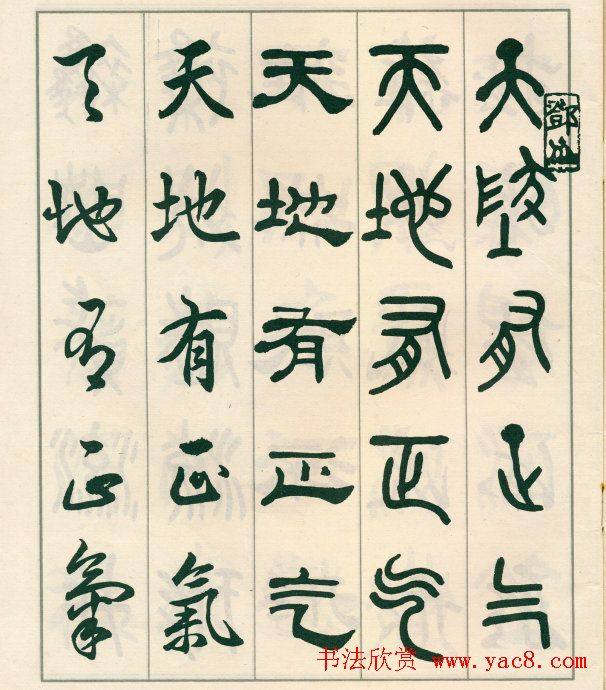 天地有正气
天地有正气
天地有正气
天地有正氣
天地有正氣
书法欣赏 www.yac8.com